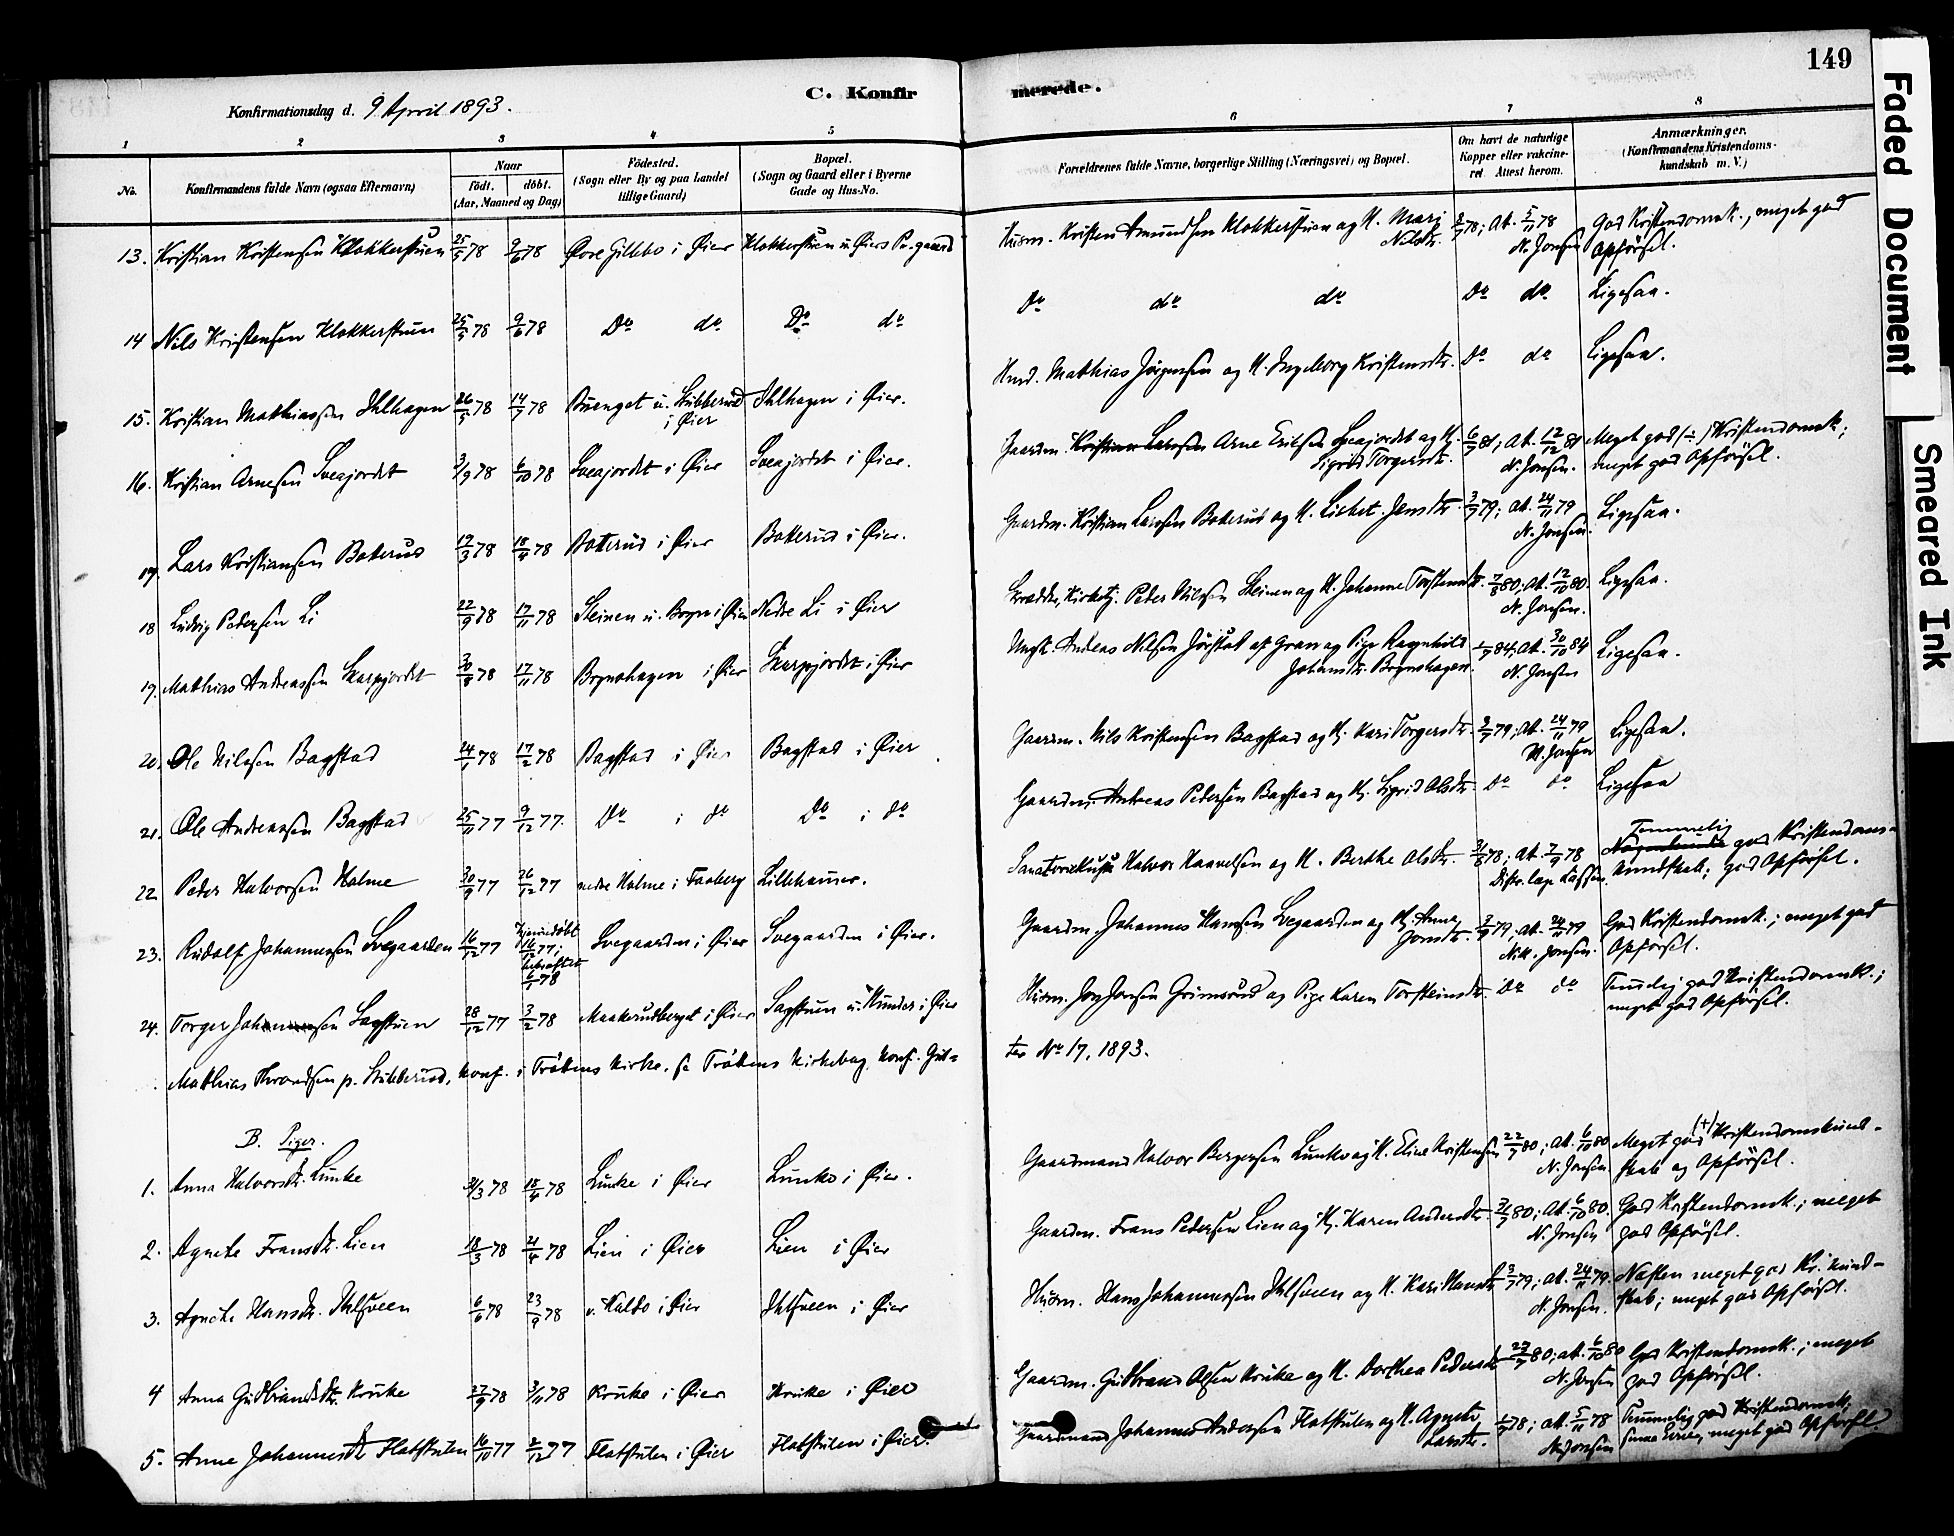 149
Faded Document
Smeared Ink
Konfirmationsdag d. 9 April 1893.
C. Konfirmerede.
1 2 3 4 5 6 7 8
No.
Konfirmandens fulde Navn (ogsaa Efternavn)
Naar
födt. döbt.
(Aar, Maaned og Dag)
Födested.
(Sogn eller By og paa Landet
tillige Gaard)
Bopæl.
(Sogn og Gaard eller i Byerne
Gade og Hus-No.
Forældrenes fulde Navne, borgerlige Stilling (Næringsvei) og Bopæl.
Om havt de naturlige
Kopper eller vakcine-
ret. Attest herom.
Anmærkninger.
(Konfirmandens Kristendoms-
kundskab m. V.)
13. Kristian Kristensen Klokkerstuen 25/5 78 9/6 78 Øvre Gillebo i Øier Klokkerstuen u. Øiers Pr.gaard Husm. Kristen Amundsen Klokkerstuen og H. Mari Nilsdtr. 78; At. 5/11 78 N. Jonsen God Kristendomsk., meget god Opførsel.
14 Nils Kristensen Klokkerstuen 25/5 78 9/6 78 Do do Do do Do do do Do do Ligesaa.
15. Kristian Mathiassen Ihlhagen 26/5 78 14/7 78 Buenget u. Stubberud i Øier Ihlhagen i Øier. Husm. Mathias Jörgensen og H. Ingeborg Kristensdtr. Do do Ligesaa.
16. Kristian Arnesen Sveajordet 3/9 78 6/10 78 Sveajordet i Øier Sveajordet i Øier. Gaardm. Kristian Larssen Arne Eriksen Sveajordet og H. Sigrid Torgersdtr. 6/9 81; At. 12/12 81 N. Jonsen. Meget god (÷) Kristendomsk.; meget god Opførsel.
17. Lars Kristiansen Batterud 17/3 78 18/4 78 Batterud i Øier Batterud i Øier. Gaardm. Kristian Larssen Batterud og H. Lisbet Jensdtr. 79; At. 24/11 79 N. Jonsen. Ligesaa.
18 Ludvig Pedersen Li 22/9 78 17/11 78 Steinen u. Bryn i Øier Nedre Li i Øier Skrædder, Kirketj. Peder Nilssen Steinen og H. Johanne Torstensdtr. 80; At. 12/10 80. N. Jonsen. Ligesaa.
19. Mathias Andreassen Skarpjordet 30/8 78 17/11 78 Brynshagen i Øier Skarpjordet i Øier Ungk. Andreas Nilsen Jörstad af Gran og Pige Ragnhild Johansdtr. Brynshagen. 84; At. 30/10 84 N. Jonsen Ligesaa.
20. Ole Nilssen Bagstad 14/1 78 17/2 78 Bagstad i Øier Bagstad i Øier Gaardm. Nils Kristensen Bagstad og H. Kari Torgersdtr. 79; At. 24/11 79 N. Jonsen Ligesaa.
21. Ole Andreassen Bagstad 25/11 77 9/12 77. Do i do Do i do Gaardm. Andreas Pedersen Bagstad og H. Sigrid Olsdtr. Do do Ligesaa
22 Peder Halvorsen Holme 30/9 77 26/12 77 nedre Holme i Faaberg Lillehamer. Halvor Haavelsen og H. Berthe Olsdtr. 31/8 78; At. 2/9 78 Distr.læge Temmelig god Kristendomskundskab; god Opførsel.
23. Rudolf Johannessen Svegaarden 16/12 77 hjemmedöbt 16/12 77; bekræftet 6/1 78 Svegaarden i Øier Svegaarden i Øier. Gaardm. Johannes Hansen Svegaarden og H. Anna Jonsdtr. 79; At. 24/11 79 N. Jonsen. God Kristendomsk.; meget god Opførsel.
24. Torger Johannessen Sagstuen 28/12 77 3/2 78 Maakerudberget i Øier Sagstuen u. Hunder i Øier Husm. Jon Jonsen Grimsrud og Pige Karen Torsteinsdtr. Do do Temmelig god Kristendomsk.; meget god Opførsel.
Mathias Throndsen p. Stubberud, konf. i Tröttens Kirke, se Tröttens Kirkebog Konf. Gutter No 17, 1893.
B. Piger.
1. Anna Halvorsdtr. Lunke 31/3 78 18/4 78 Lunke i Øier Lunke i Øier. Gaardmand Halvor Bergersen Lunke og H. Eline Kristensen 22/7 80; At. 6/10 80 N. Jonsen Meget god (+) Kristendomskundskab og Opførsel.
2. Agnethe Fransdtr. Lien 18/3 78 21/4 78 Lien i Øier Lien i Øier Gaardm. Frans Pedersen Lien og H. Karen Andersdtr. 80; At. 6/10 80. N. Jonsen God Kristendomsk.; meget god Opførsel.
3. Agnethe Hansdtr. Ihlsveen 6/6 78 23/9 78 u. Kalbo i Øier Ihlsveen i Øier Husm. Hans Johannessen Ihlsveen og H. Kari Hansdtr. 79; At. 24/11 79. N. Jonsen. Næsten meget god Kr. kundskab; meget god Opførsel.
4 Anna Gudbrandsdtr. Kruke 27/9 78 3/11 78 Kruke i Øier Kruke i Øier Gaardm. Gudbrand Olsen Kruke og H. Dorthea Pedersdtr. 80; At. 6/10 80 N. Jonsen God Kristendomsk.; meget god Opførsel.
5. Anne Johannesdtr. Flatstulen 16/10 77 2/12 77 Flatstulen i Øier Flatstulen i Øier. Gaardmand Johannes Andersen Flatstulen og H. Agnete Larsdtr. 78; At. 5/11 78 N. Jonsen Temmelig god Kristendomsk., smaa Evner, meget god Opførsel.